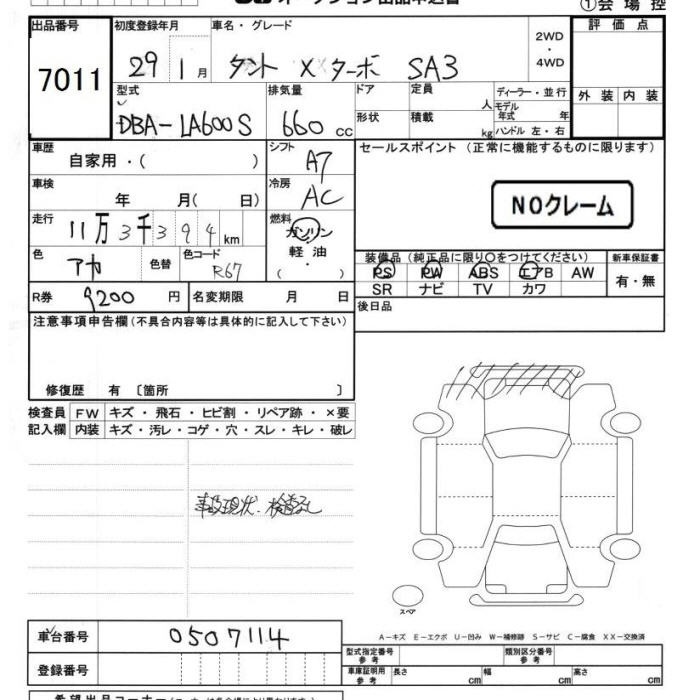 オークション出品申込書 ①会場控
出品番号 7011
初度登録年月 29 1月
車名・グレード タント X ターボ SA3
2WD・4WD
評価点
外装 内装
型式 DBA-LA600S
排気量 660 cc
ドア 定員 人
形状 積載 kg
ディーラー・並行
モデル年式 年
ハンドル 左・右
車歴 自家用・( )
シフト A7
セールスポイント (正常に機能するものに限ります)
NOクレーム
車検 年 月( 日)
冷房 AC
走行 11万3千394km
燃料 ガソリン 軽油 ( )
色 アカ 色替 色コード R67
装備品(純正品に限り〇をつけてください) 新車保証書
PS PW ABS エアB AW 有・無
SR ナビ TV カワ
R券 9200 円 名変期限 月 日
後日品
注意事項申告欄(不具合内容等は具体的に記入して下さい)
修復歴 有 〔箇所 〕
検査員 FW キズ・飛石・ヒビ割・リペア跡・×要
記入欄 内装 キズ・汚レ・コゲ・穴・スレ・キレ・破レ
事故現状・検査なし
スペア
A-キズ E-エクボ U-凹み W-補修跡 S-サビ C-腐食 XX-交換済
車台番号 0507114
型式指定番号 参考 類別区分番号 参考
登録番号
車庫証明用 参考 長さ cm 幅 cm 高さ cm
希望出品コーナー